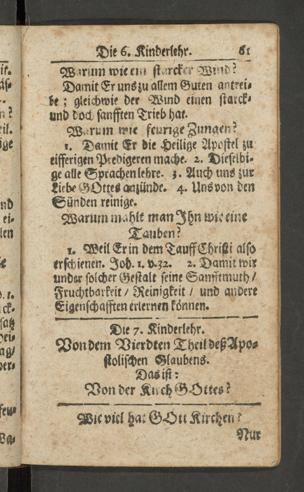 Die 6. Kinderlehr. 61
Warum wie ein starcker Wind?
Damit Er uns zu allem Guten antrei-
be; gleichwie der Wind einen starck-
und doch sanfften Trieb hat.
Warum wie feurige Zungen?
1. Damit Er die Heilige Apostel zu
eifferigen Predigeren mache. 2. Dieselbi-
ge alle Sprachen lehre. 3. Auch uns zur
Liebe GOttes anzünde. 4. Uns von den
Sünden reinige.
Warum mahlt man Ihn wie eine
Tauben?
1. Weil Er in dem Tauff Christi also
erschienen. Joh. 1. v. 32. 2. Damit wir
under solcher Gestalt seine Sanfftmuth/
Fruchtbarkeit/ Reinigkeit/ und andere
Eigenschafften erlernen können.
Die 7. Kinderlehr.
Von dem Vierdten Theil deß Apo-
stolischen Glaubens.
Das ist:
Von der Kirch GOttes?
Wie viel hat GOtt Kirchen?
Nur